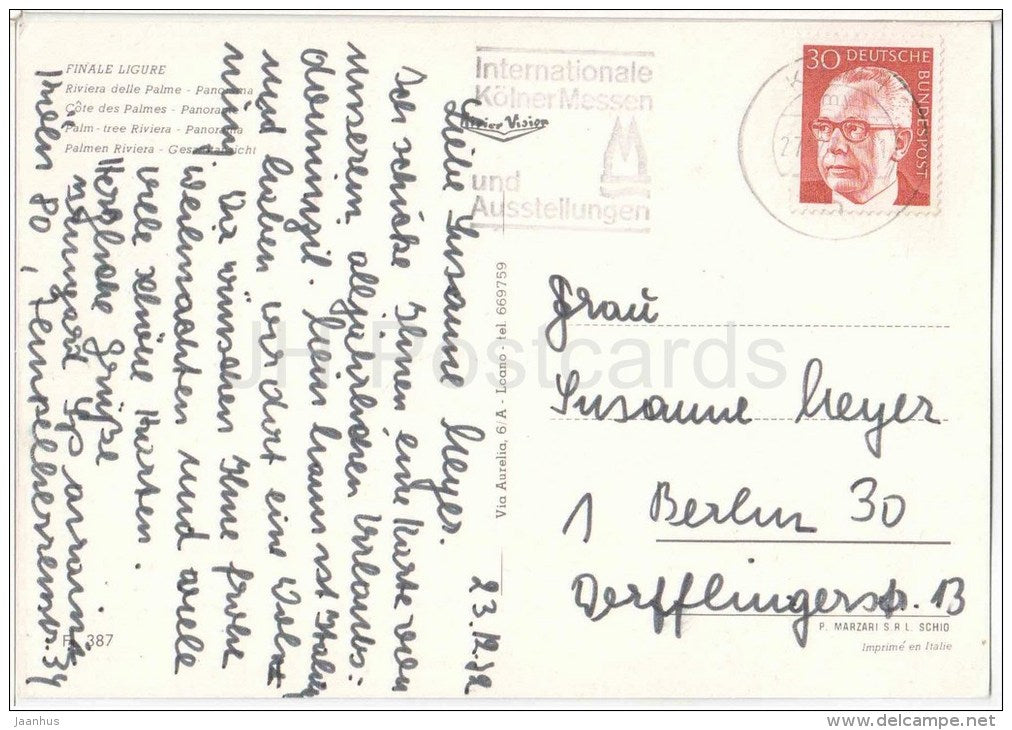 FINALE LIGURE
Riviera delle Palme - Panorama
Côte des Palmes - Panorama
Palm-tree Riviera - Panorama
Palmen Riviera - Gesamtansicht
Internationale
Kölner Messen
und
Ausstellungen
30 DEUTSCHE
BUNDESPOST
Liebe Susanne Meyer.
23.12.
Ich schicke Ihnen eine Karte von
unserem alljährlichen Urlaubs:
Mein Mann ist Italien
und haben wir dort eine
Wir wünschen Ihne frohe
Weihnachten und
viele schöne Karten.
Herzliche Grüße
Köln 80,
Frau
Susanne Meyer
1 Berlin 30
Derfflingerstr. 13
Via Aurelia, 6/A - Loano - tel. 669759
P. MARZARI S R L. SCHIO
Imprimé en Italie
387
JH Postcards
Jaanhus
www.delcampe.net